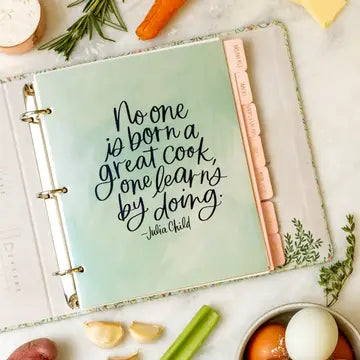 No one
is born a
great cook,
one learns
by doing.
-Julia Child